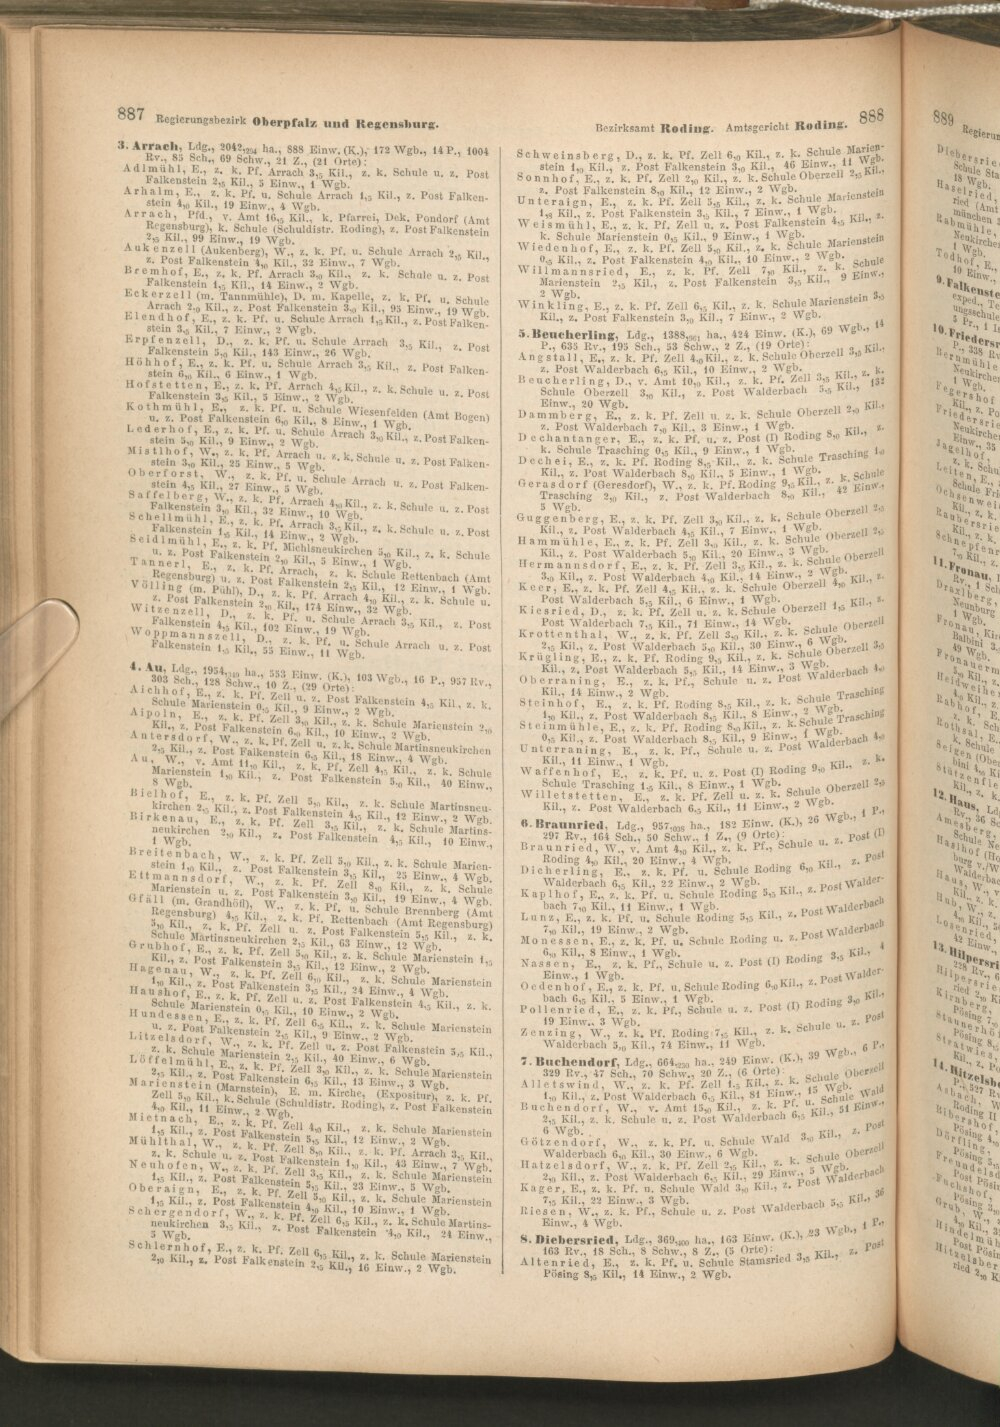 887 Regierungsbezirk Oberpfalz und Regensburg.
3. Arrach, Ldg., 2042,204 ha., 888 Einw. (K.), 172 Wgb., 14 P., 1004
Rv., 85 Sch., 69 Schw., 21 Z., (21 Orte):
Adlmühl, E., z. k. Pf. Arrach 3,5 Kil., z. k. Schule u. z. Post
Falkenstein 2,5 Kil., 5 Einw., 1 Wgb.
Arhalm, E., z. k. Pf. u. Schule Arrach 1,5 Kil., z. Post Falken-
stein 4,0 Kil., 19 Einw., 4 Wgb.
Arrach, Pfd., v. Amt 16,5 Kil., k. Pfarrei, Dek. Pondorf (Amt
Regensburg), k. Schule (Schuldistr. Roding), z. Post Falkenstein
2,5 Kil., 99 Einw., 19 Wgb.
Aukenzell (Aukenberg), W., z. k. Pf. u. Schule Arrach 2,5 Kil.,
z. Post Falkenstein 4,0 Kil., 32 Einw., 7 Wgb.
Bremhof, E., z. k. Pf. Arrach 3,0 Kil., z. k. Schule u. z. Post
Falkenstein 1,5 Kil., 14 Einw., 2 Wgb.
Eckerzell (m. Tannmühle), D. m. Kapelle, z. k. Pf. u. Schule
Arrach 2,0 Kil., z. Post Falkenstein 3,0 Kil., 95 Einw., 19 Wgb.
Elendhof, E., z. k. Pf. u. Schule Arrach 1,5 Kil., z. Post Falken-
stein 3,5 Kil., 7 Einw., 2 Wgb.
Erpfenzell, D., z. k. Pf. u. Schule Arrach 3,5 Kil., z. Post
Falkenstein 5,0 Kil., 143 Einw., 26 Wgb.
Höhhof, E., z. k. Pf. u. Schule Arrach 3,5 Kil., z. Post Falken-
stein 6,0 Kil., 6 Einw., 1 Wgb.
Hofstetten, E., z. k. Pf. Arrach 4,5 Kil., z. k. Schule u. z. Post
Falkenstein 3,5 Kil., 5 Einw., 2 Wgb.
Kothmühl, E., z. k. Pf. u. Schule Wiesenfelden (Amt Bogen)
u. z. Post Falkenstein 6,0 Kil., 8 Einw., 1 Wgb.
Lederhof, E., z. k. Pf. u. Schule Arrach 3,0 Kil., z. Post Falken-
stein 5,0 Kil., 9 Einw., 2 Wgb.
Mistlhof, W., z. k. Pf. Arrach u. z. k. Schule u. z. Post Falken-
stein 3,0 Kil., 25 Einw., 5 Wgb.
Oberforst, W., z. k. Pf. u. Schule Arrach u. z. Post Falken-
stein 4,5 Kil., 27 Einw., 5 Wgb.
Saffelberg, W., z. k. Pf. Arrach 4,0 Kil., z. k. Schule u. z. Post
Falkenstein 3,0 Kil., 32 Einw., 10 Wgb.
Schellmühl, E., z. k. Pf. Arrach 3,5 Kil., z. k. Schule u. z. Post
Falkenstein 1,5 Kil., 14 Einw., 2 Wgb.
Seidlmühl, E., z. k. Pf. Michlsneukirchen 5,0 Kil., z. k. Schule
u. z. Post Falkenstein 2,0 Kil., 5 Einw., 1 Wgb.
Tannerl, E., z. k. Pf. Arrach, z. k. Schule Rettenbach (Amt
Regensburg) u. z. Post Falkenstein 2,5 Kil., 12 Einw., 1 Wgb.
Völling (m. Pühl), D., z. k. Pf. Arrach 4,0 Kil., z. k. Schule u.
z. Post Falkenstein 2,0 Kil., 174 Einw., 32 Wgb.
Witzenzell, D., z. k. Pf. u. Schule Arrach 3,5 Kil., z. Post
Falkenstein 4,5 Kil., 102 Einw., 19 Wgb.
Woppmannszell, D., z. k. Pf. u. Schule Arrach u. z. Post
Falkenstein 1,5 Kil., 55 Einw., 11 Wgb.
4. Au, Ldg., 1954,349 ha., 553 Einw. (K.), 103 Wgb., 16 P., 957 Rv.,
303 Sch., 128 Schw., 10 Z., (29 Orte):
Aichhof, E., z. k. Pf. Zell u. z. Post Falkenstein 4,5 Kil., z. k.
Schule Marienstein 0,5 Kil., 9 Einw., 2 Wgb.
Aipoln, E., z. k. Pf. Zell 3,5 Kil., z. k. Schule Marienstein 2,0
Kil., z. Post Falkenstein 6,0 Kil., 10 Einw., 2 Wgb.
Antersdorf, W., z. k. Pf. Zell u. z. k. Schule Martinsneukirchen
2,5 Kil., z. Post Falkenstein 6,5 Kil., 18 Einw., 4 Wgb.
Au, W., v. Amt 11,0 Kil., z. k. Pf. Zell 4,5 Kil., z. k. Schule
Marienstein 1,0 Kil., z. Post Falkenstein 5,0 Kil., 40 Einw.,
8 Wgb.
Bielhof, E., z. k. Pf. Zell 5,0 Kil., z. k. Schule Martinsneu-
kirchen 2,5 Kil., z. Post Falkenstein 4,5 Kil., 12 Einw., 2 Wgb.
Birkenau, E., z. k. Pf. Zell 3,5 Kil., z. k. Schule Martins-
neukirchen 2,0 Kil., z. Post Falkenstein 4,5 Kil., 10 Einw.,
1 Wgb.
Breitenbach, W., z. k. Pf. Zell 5,0 Kil., z. k. Schule Marien-
stein 1,0 Kil., z. Post Falkenstein 3,5 Kil., 25 Einw., 4 Wgb.
Ettmannsdorf, W., z. k. Pf. Zell 8,0 Kil., z. k. Schule
Marienstein u. z. Post Falkenstein 3,0 Kil., 19 Einw., 4 Wgb.
Gfäll (m. Grandhöfl), W., z. k. Pf. u. Schule Brennberg (Amt
Regensburg) 4,5 Kil., z. k. Pf. Rettenbach (Amt Regensburg)
3,0 Kil., z. k. Pf. Zell u. z. Post Falkenstein 5,5 Kil., z. k.
Schule Martinsneukirchen 2,5 Kil., 63 Einw., 12 Wgb.
Grubhof, E., z. k. Pf. Zell 5,0 Kil., z. k. Schule Marienstein 1,5
Kil., z. Post Falkenstein 3,5 Kil., 12 Einw., 2 Wgb.
Hagenau, W., z. k. Pf. Zell 6,0 Kil., z. k. Schule Marienstein
1,0 Kil., z. Post Falkenstein 3,5 Kil., 24 Einw., 4 Wgb.
Haushof, E., z. k. Pf. Zell u. z. Post Falkenstein 4,5 Kil., z. k.
Schule Marienstein 0,5 Kil., 10 Einw., 2 Wgb.
Hundessen, E., z. k. Pf. Zell 6,5 Kil., z. k. Schule Marienstein
u. z. Post Falkenstein 2,5 Kil., 9 Einw., 2 Wgb.
Litzelsdorf, W., z. k. Pf. Zell u. z. Post Falkenstein 5,5 Kil.,
z. k. Schule Marienstein 2,5 Kil., 40 Einw., 6 Wgb.
Löffelmühl, E., z. k. Pf. Zell 3,0 Kil., z. k. Schule Marienstein
2,5 Kil., z. Post Falkenstein 6,5 Kil., 13 Einw., 3 Wgb.
Marienstein (Marnstein), E. m. Kirche, (Expositur), z. k. Pf.
Zell 5,0 Kil., k. Schule (Schuldistr. Roding), z. Post Falkenstein
4,0 Kil., 11 Einw., 2 Wgb.
Mietnach, E., z. k. Pf. Zell 4,0 Kil., z. k. Schule Marienstein
1,5 Kil., z. Post Falkenstein 5,5 Kil., 12 Einw., 2 Wgb.
Mühlthal, W., z. k. Pf. Zell 8,0 Kil., z. k. Pf. Arrach 3,5 Kil.,
z. k. Schule u. z. Post Falkenstein 1,0 Kil., 43 Einw., 7 Wgb.
Neuhofen, W., z. k. Pf. Zell 3,5 Kil., z. k. Schule Marienstein
1,5 Kil., z. Post Falkenstein 5,5 Kil., 23 Einw., 5 Wgb.
Oberaign, E., z. k. Pf. Zell 5,0 Kil., z. k. Schule Marienstein
1,5 Kil., z. Post Falkenstein 4,0 Kil., 10 Einw., 1 Wgb.
Schergendorf, W., z. k. Pf. Zell 6,5 Kil., z. k. Schule Martins-
neukirchen 3,5 Kil., z. Post Falkenstein 4,0 Kil., 24 Einw.,
5 Wgb.
Schlernhof, E., z. k. Pf. Zell 6,5 Kil., z. k. Schule Marienstein
2,0 Kil., z. Post Falkenstein 2,5 Kil., 16 Einw., 2 Wgb.
Bezirksamt Roding. Amtsgericht Roding. 888
Schweinsberg, D., z. k. Pf. Zell 6,0 Kil., z. k. Schule Marien-
stein 1,0 Kil., z. Post Falkenstein 3,0 Kil., 46 Einw., 11 Wgb.
Sonnhof, E., z. k. Pf. Zell 2,0 Kil., z. k. Schule Oberzell 2,5 Kil.,
z. Post Falkenstein 8,0 Kil., 12 Einw., 2 Wgb.
Unteraign, E., z. k. Pf. Zell 5,5 Kil., z. k. Schule Marienstein
1,8 Kil., z. Post Falkenstein 3,5 Kil., 7 Einw., 1 Wgb.
Weismühl, E., z. k. Pf. Zell u. z. Post Falkenstein 4,5 Kil., z.
k. Schule Marienstein 0,5 Kil., 9 Einw., 1 Wgb.
Wiedenhof, E., z. k. Pf. Zell 5,0 Kil., z. k. Schule Marienstein
0,5 Kil., z. Post Falkenstein 4,0 Kil., 10 Einw., 2 Wgb.
Willmannsried, E., z. k. Pf. Zell 7,0 Kil., z. k. Schule
Marienstein 2,5 Kil., z. Post Falkenstein 3,5 Kil., 9 Einw.,
2 Wgb.
Winkling, E., z. k. Pf. Zell 6,5 Kil., z. k. Schule Marienstein 3,5
Kil., z. Post Falkenstein 3,0 Kil., 7 Einw., 2 Wgb.
5. Beucherling, Ldg., 1388,961 ha., 424 Einw. (K.), 69 Wgb., 14
P., 635 Rv., 195 Sch., 53 Schw., 2 Z., (19 Orte):
Angstall, E., z. k. Pf. Zell 4,0 Kil., z. k. Schule Oberzell 3,5 Kil.,
z. Post Walderbach 6,5 Kil., 10 Einw., 2 Wgb.
Beucherling, D., v. Amt 10,0 Kil., z. k. Pf. Zell 3,5 Kil., z. k.
Schule Oberzell 3,0 Kil., z. Post Walderbach 5,5 Kil., 132
Einw., 20 Wgb.
Dammberg, E., z. k. Pf. Zell u. z. k. Schule Oberzell 2,0 Kil.,
z. Post Walderbach 7,0 Kil., 3 Einw., 1 Wgb.
Dechantanger, E., z. k. Pf. u. z. Post (I) Roding 8,0 Kil., z.
k. Schule Trasching 0,5 Kil., 9 Einw., 1 Wgb.
Dechei, E., z. k. Pf. Roding 8,5 Kil., z. k. Schule Trasching 1,0
Kil., z. Post Walderbach 8,0 Kil., 5 Einw., 1 Wgb.
Gerasdorf (Geresdorf), W., z. k. Pf. Roding 9,5 Kil., z. k. Schule
Trasching 2,0 Kil., z. Post Walderbach 8,0 Kil., 42 Einw.,
5 Wgb.
Guggenberg, E., z. k. Pf. Zell 3,0 Kil., z. k. Schule Oberzell 2,5
Kil., z. Post Walderbach 4,5 Kil., 7 Einw., 1 Wgb.
Hammühle, E., z. k. Pf. Zell 3,0 Kil., z. k. Schule Oberzell 2,0
Kil., z. Post Walderbach 5,0 Kil., 20 Einw., 3 Wgb.
Hermannsdorf, E., z. k. Pf. Zell 3,5 Kil., z. k. Schule Oberzell
3,0 Kil., z. Post Walderbach 4,0 Kil., 14 Einw., 2 Wgb.
Keer, E., z. k. Pf. Zell 4,5 Kil., z. k. Schule Oberzell 4,0 Kil., z.
Post Walderbach 5,5 Kil., 6 Einw., 1 Wgb.
Kiesried, D., z. k. Pf. Zell u. z. k. Schule Oberzell 1,5 Kil., z.
Post Walderbach 7,5 Kil., 71 Einw., 14 Wgb.
Krottenthal, W., z. k. Pf. Zell 3,0 Kil., z. k. Schule Oberzell
2,5 Kil., z. Post Walderbach 5,0 Kil., 30 Einw., 6 Wgb.
Krügling, E., z. k. Pf. Roding 9,5 Kil., z. k. Schule Oberzell 3,5
Kil., z. Post Walderbach 5,5 Kil., 14 Einw., 3 Wgb.
Oberraning, E., z. k. Pf., Schule u. z. Post Walderbach 4,0
Kil., 14 Einw., 2 Wgb.
Steinhof, E., z. k. Pf. Roding 8,5 Kil., z. k. Schule Trasching
1,0 Kil., z. Post Walderbach 8,5 Kil., 8 Einw., 2 Wgb.
Steinmühle, E., z. k. Pf. Roding 8,0 Kil., z. k. Schule Trasching
0,5 Kil., z. Post Walderbach 8,5 Kil., 9 Einw., 1 Wgb.
Unterraning, E., z. k. Pf., Schule u. z. Post Walderbach 4,0
Kil., 11 Einw., 1 Wgb.
Waffenhof, E., z. k. Pf. u. z. Post (I) Roding 9,0 Kil., z. k.
Schule Trasching 1,5 Kil., 8 Einw., 1 Wgb.
Willetstetten, E., z. k. Pf. Zell u. z. k. Schule Oberzell 2,5
Kil., z. Post Walderbach 6,5 Kil., 11 Einw., 2 Wgb.
6. Braunried, Ldg., 957,035 ha., 182 Einw. (K.), 26 Wgb., 1 P.,
297 Rv., 164 Sch., 50 Schw., 1 Z., (9 Orte):
Braunried, W., v. Amt 4,0 Kil., z. k. Pf., Schule u. z. Post (I)
Roding 4,0 Kil., 20 Einw., 4 Wgb.
Dicherling, E., z. k. Pf. u. Schule Roding 6,0 Kil., z. Post
Walderbach 6,5 Kil., 22 Einw., 2 Wgb.
Kaplhof, E., z. k. Pf. u. Schule Roding 5,5 Kil., z. Post Walder-
bach 7,0 Kil., 11 Einw., 1 Wgb.
Lunz, E., z. k. Pf. u. Schule Roding 5,5 Kil., z. Post Walderbach
7,0 Kil., 19 Einw., 2 Wgb.
Monessen, E., z. k. Pf. u. Schule Roding u. z. Post Walderbach
6,0 Kil., 8 Einw., 1 Wgb.
Nassen, E., z. k. Pf., Schule u. z. Post (I) Roding 3,5 Kil., 4
Einw., 1 Wgb.
Oedenhof, E., z. k. Pf. u. Schule Roding 6,0 Kil., z. Post Walder-
bach 6,5 Kil., 5 Einw., 1 Wgb.
Pollenried, E., z. k. Pf., Schule u. z. Post (I) Roding 3,0 Kil.,
19 Einw., 3 Wgb.
Zenzing, W., z. k. Pf. Roding 7,5 Kil., z. k. Schule u. z. Post
Walderbach 5,0 Kil., 74 Einw., 11 Wgb.
7. Buchendorf, Ldg., 664,250 ha., 249 Einw. (K.), 39 Wgb., 6 P.,
329 Rv., 47 Sch., 70 Schw., 20 Z., (6 Orte):
Alletswind, W., z. k. Pf. Zell 1,5 Kil., z. k. Schule Oberzell
1,0 Kil., z. Post Walderbach 6,5 Kil., 81 Einw., 15 Wgb.
Buchendorf, W., v. Amt 15,0 Kil., z. k. Pf. u. Schule Wald
2,5 Kil., z. k. Schule u. z. Post Walderbach 6,5 Kil., 51 Einw.,
6 Wgb.
Götzendorf, W., z. k. Pf. u. Schule Wald 3,0 Kil., z. Post
Walderbach 6,0 Kil., 30 Einw., 6 Wgb.
Hatzelsdorf, W., z. k. Pf. Zell 2,5 Kil., z. k. Schule Oberzell
2,0 Kil., z. Post Walderbach 6,5 Kil., 29 Einw., 5 Wgb.
Kager, E., z. k. Pf. u. Schule Wald 3,0 Kil., z. Post Walderbach
7,5 Kil., 22 Einw., 3 Wgb.
Riesen, W., z. k. Pf., Schule u. z. Post Walderbach 5,5 Kil., 36
Einw., 4 Wgb.
8. Diebersried, Ldg., 369,400 ha., 163 Einw. (K.), 23 Wgb., 1 P.,
163 Rv., 18 Sch., 8 Schw., 8 Z., (5 Orte):
Altenried, E., z. k. Pf. u. Schule Stamsried 3,5 Kil., z. Post
Pösing 8,5 Kil., 14 Einw., 2 Wgb.
889
9. Falkenste
10. Friedersr
11. Fronau,
12. Haus, Ld
13. Hilpersri
14. Hitzelsbe